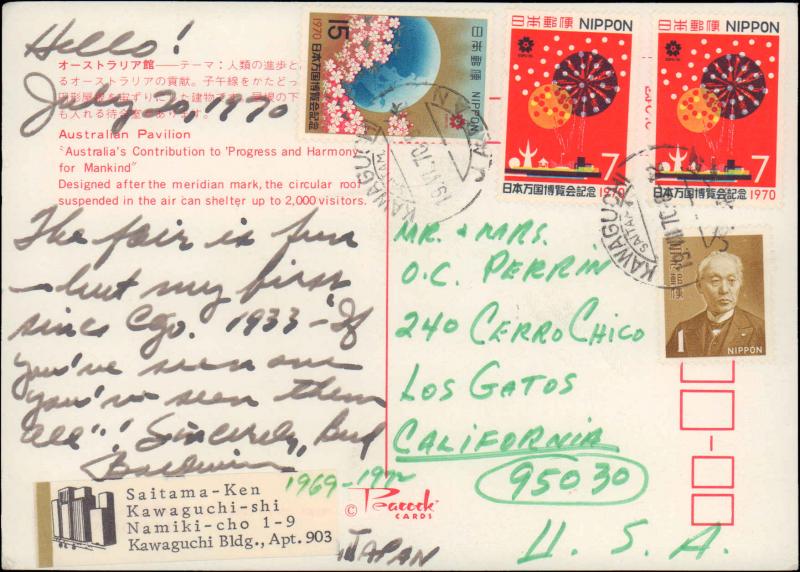 Hello!
オーストラリア館――テーマ：人類の進歩と
るオーストラリアの貢献。子午線をかたどっ
July 20, 1970
円形屋
も入れる待合
あります。
Australian Pavilion
"Australia's Contribution to 'Progress and Harmony
for Mankind"
Designed after the meridian mark, the circular roof
suspended in the air can shelter up to 2,000 visitors.
The fair is fun
- but my first
since Cgo. 1933 - If
you've seen one
you've seen them
all"! Sincerely, Bud
Baldwin
1969-1972
Saitama-Ken
Kawaguchi-shi
Namiki-cho 1-9
Kawaguchi Bldg., Apt. 903
JAPAN
© Peacock
CARDS
1970 15
日本万国博覧会記念
日本郵便 NIPPON
日本郵便 NIPPON
EXPO'70
7
日本万国博覧会記念 1970
日本郵便 NIPPON
EXPO'70
7
日本万国博覧会記念 1970
日本郵便
1 NIPPON
KAWAGUCHI
SAITAMA
19.VII.70
JAPAN
KAWAGUCHI
SAITAMA
19.VII.70
MR. & MRS.
O.C. PERRIN
240 CERRO CHICO
LOS GATOS
CALIFORNIA
95030
U. S. A.